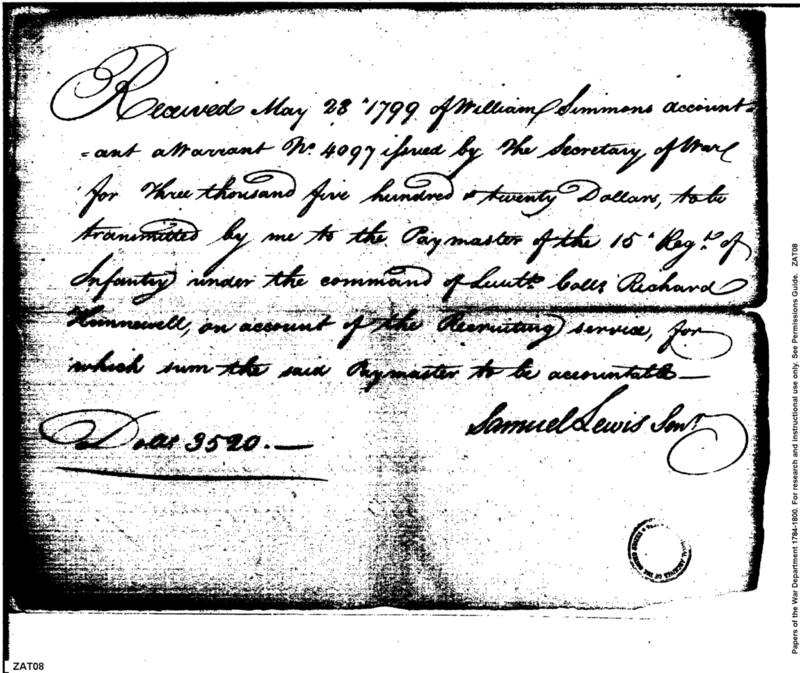 Received May 28th 1799 of William Simmons account=
=ant a Warrant No. 4097 issued by the Secretary of War
for Three thousand five hundred & twenty Dollars, to be
transmitted by me to the Paymaster of the 15th Regt. of
Infantry under the command of Lieutt. Coll. Richard
Hunnewell, on account of the Recruiting service, for
which sum the said Paymaster to be accountable—
Samuel Lewis Senr.
Dolls 3520.—
ZAT08
Papers of the War Department 1784-1800. For research and instructional use only. See Permissions Guide. ZAT08